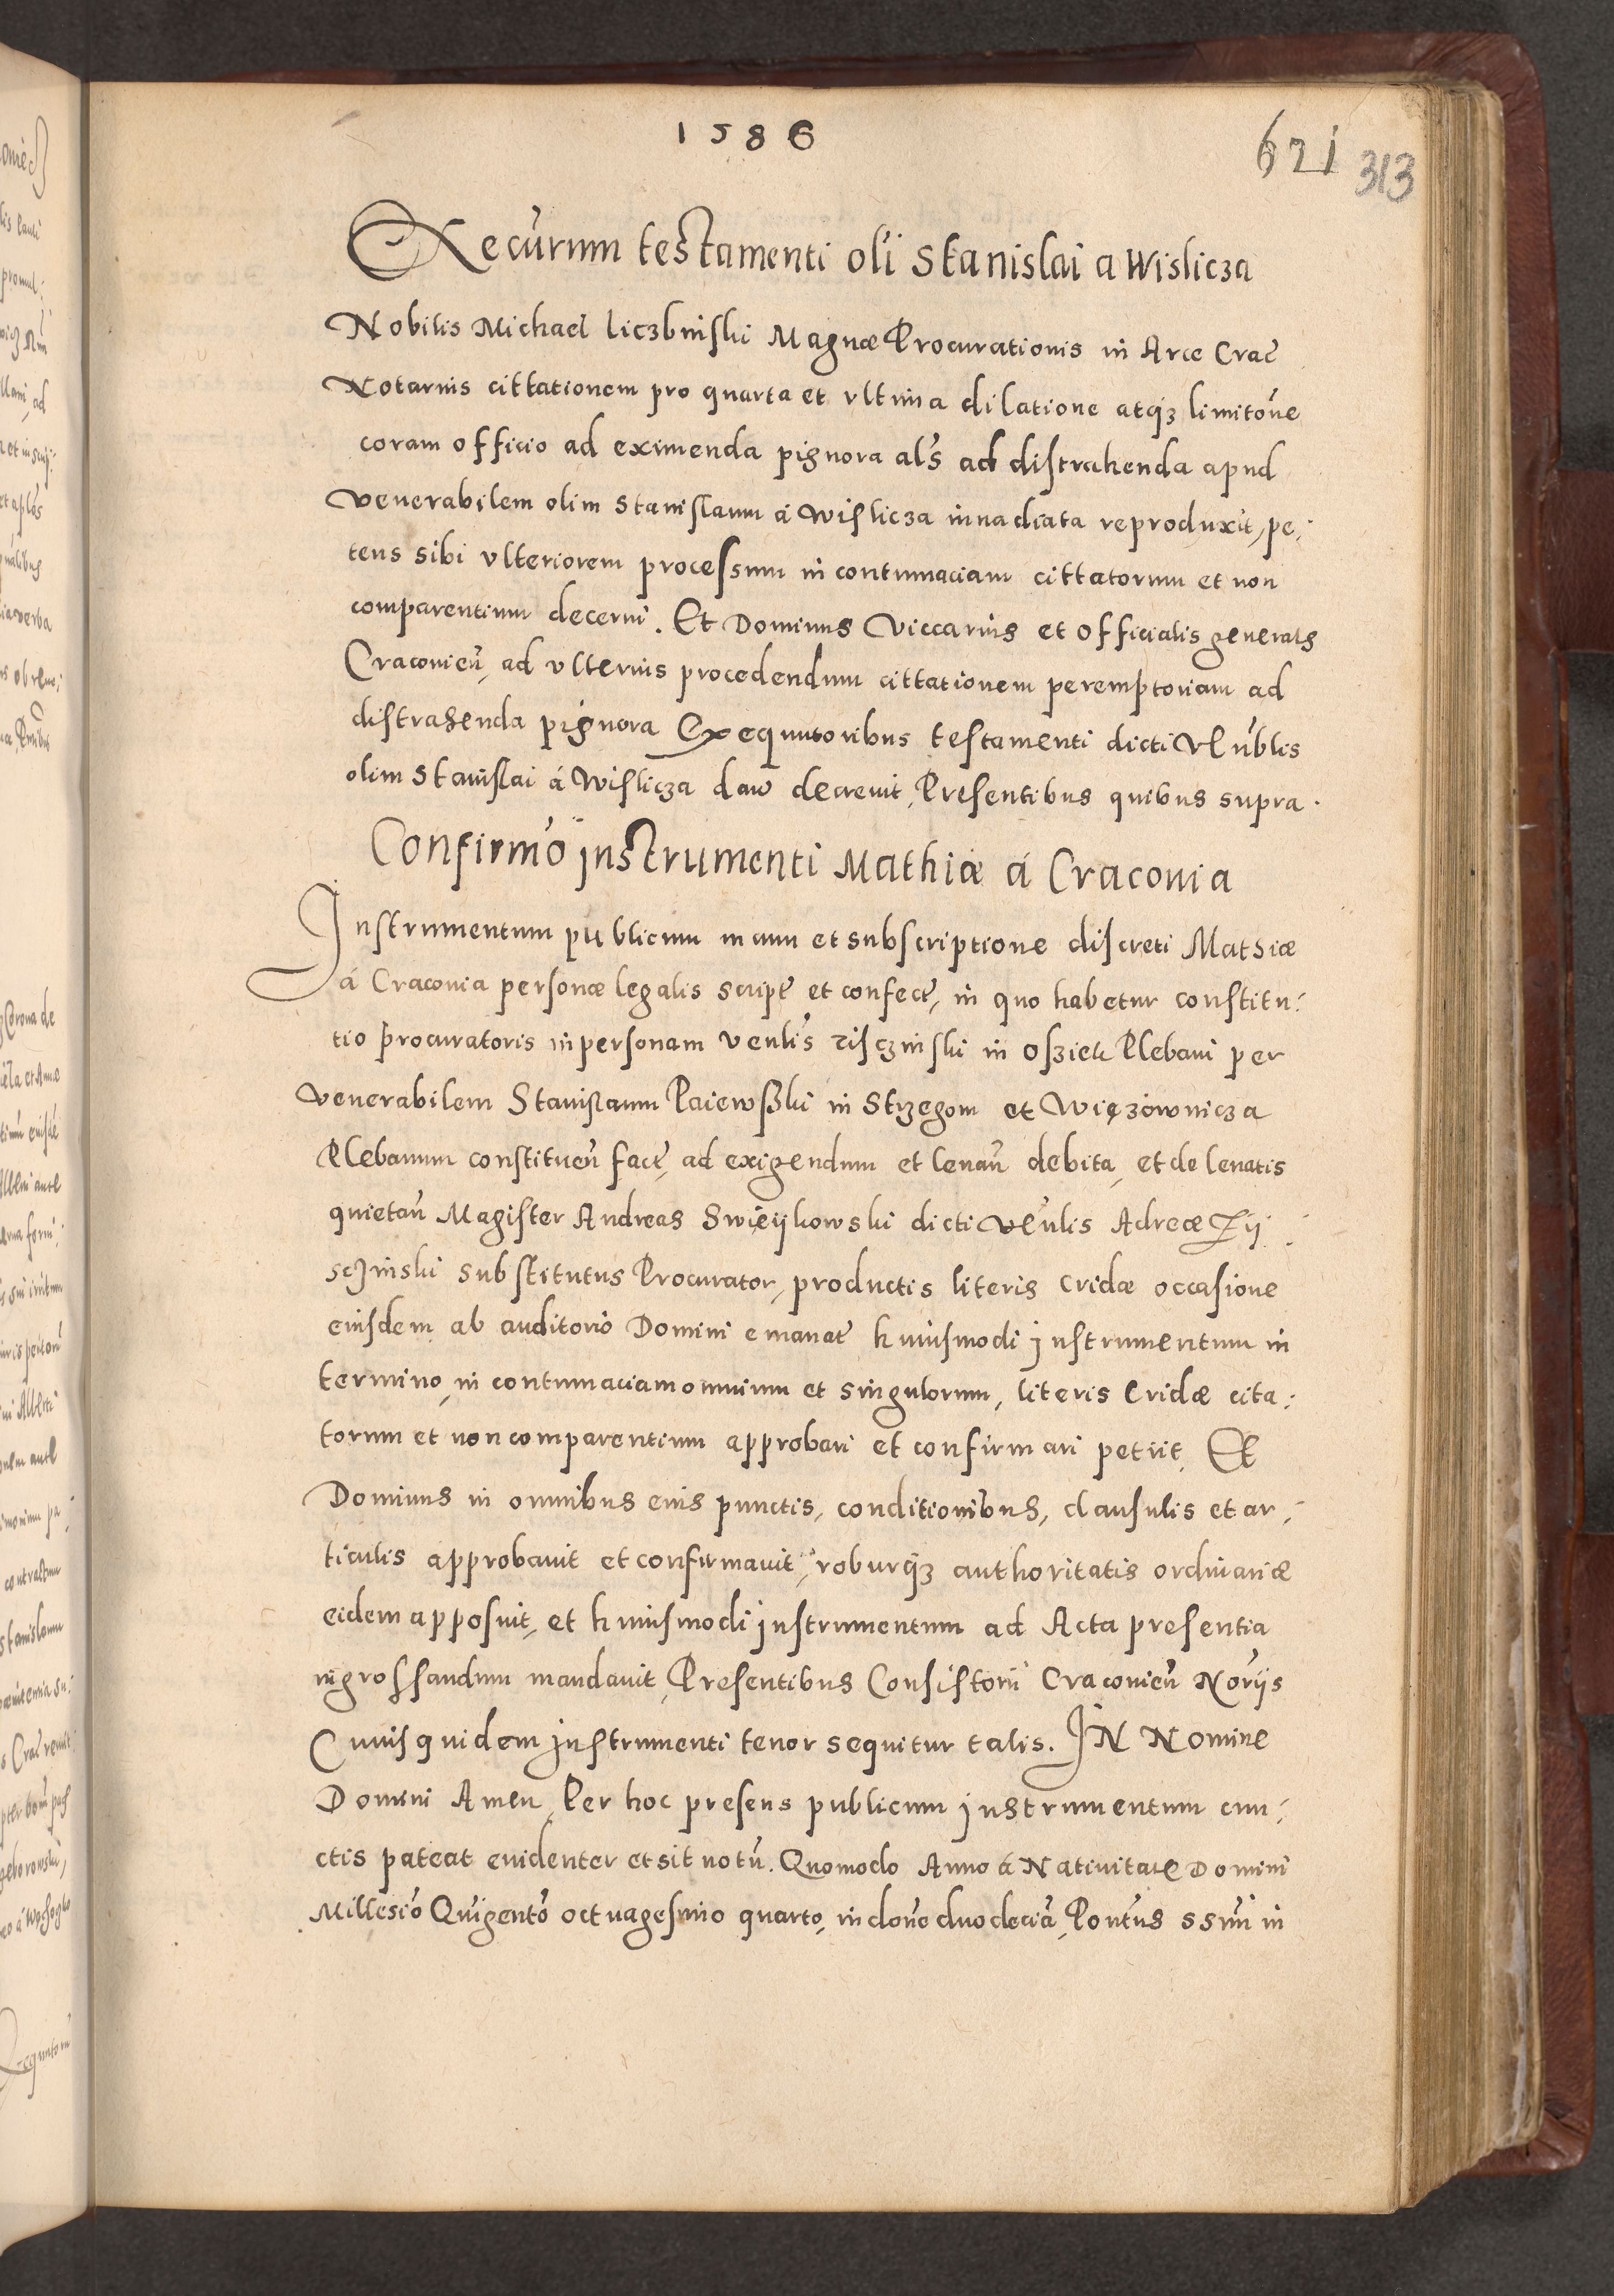 1586
621 313
Execurum testamenti oli Stanislai a Wislicza
Nobilis Michael Liczbinski Magnæ Procurationis in Arce Crac
Notarius cittationem pro quarta et vltima dilatione atqȝ limitone
coram officio ad eximenda pignora als ad distrahenda apud
venerabilem olim Stanislaum á Wislicza innadiata reproduxit, pe:
tens sibi vlteriorem processum in contumaciam cittatorum et non
comparentium decerni. Et Dominus Viccarius et officialis generals
Cracovien, ad vlterius procedendum cittationem peremptoriam ad
distrahenda pignora Exequutoribus testamenti dicti Vlnblis
olim Stanislai á Wislicza dari decrevit, Presentibus quibus supra.
Confirmo instrumenti Mathiæ á Cracovia
Instrumentum publicum manu et subscriptione discreti Mathiæ
á Cracovia personæ legalis script et confect, in quo habetur constitu:
tio procuratoris in personam venlis Zisczinski in Osziek Plebani per
venerabilem Stanislaum Paiewski in Strzegom et Wiązownicza
Plebanum constituen fact, ad exigendum et levan debita, et de levatis
quietan Magister Andreas Swieykowski dicti venlis Adreæ Zij
sczinski substitutus Procurator, productis literis Cridæ occasione
eiusdem ab auditorio Domini emanat huiusmodi instrumentum in
termino, in contumaciam omnium et singulorum, literis Cridæ cita:
torum et non comparentium approbari et confirmari petiit Et
Dominus in omnibus eius punctis, conditionibus, clausulis et ar:
ticulis approbavit et confirmavit, roburqȝ authoritatis ordinariæ
eidem apposuit, et huiusmodi instrumentum ad Acta presentia
ingrossandum mandavit, Presentibus Consistorii Cracovien Norijs
Cuiusquidem instrumenti tenor sequitur talis. IN Nomine
Domini Amen, Per hoc presens publicum instrumentum cun:
ctis pateat evidenter et sit notu. Quomodo Anno á Nativitate Domini
Millesio Quigento octuagesimo quarto, indone duodecia, Pontus ssimi in